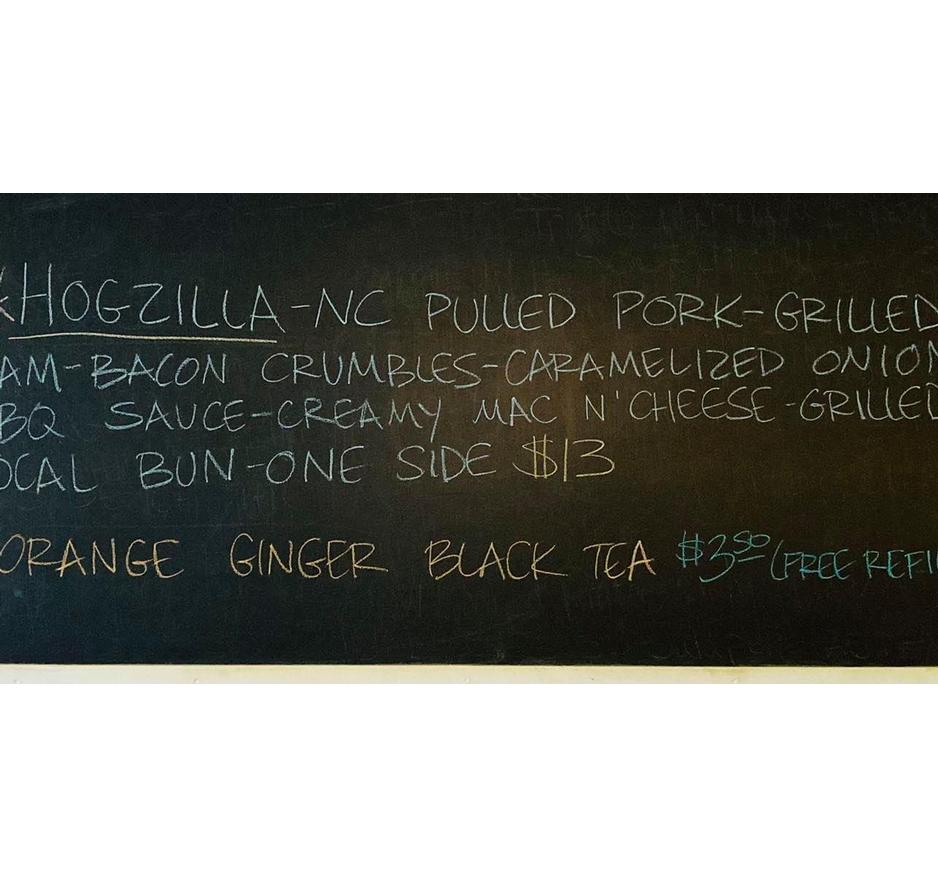 HOGZILLA-NC PULLED PORK-GRILLED
AM-BACON CRUMBLES-CARAMELIZED ONION
BQ SAUCE-CREAMY MAC N'CHEESE-GRILLED
OCAL BUN-ONE SIDE $13
ORANGE GINGER BLACK TEA $3.50 (FREE REFI